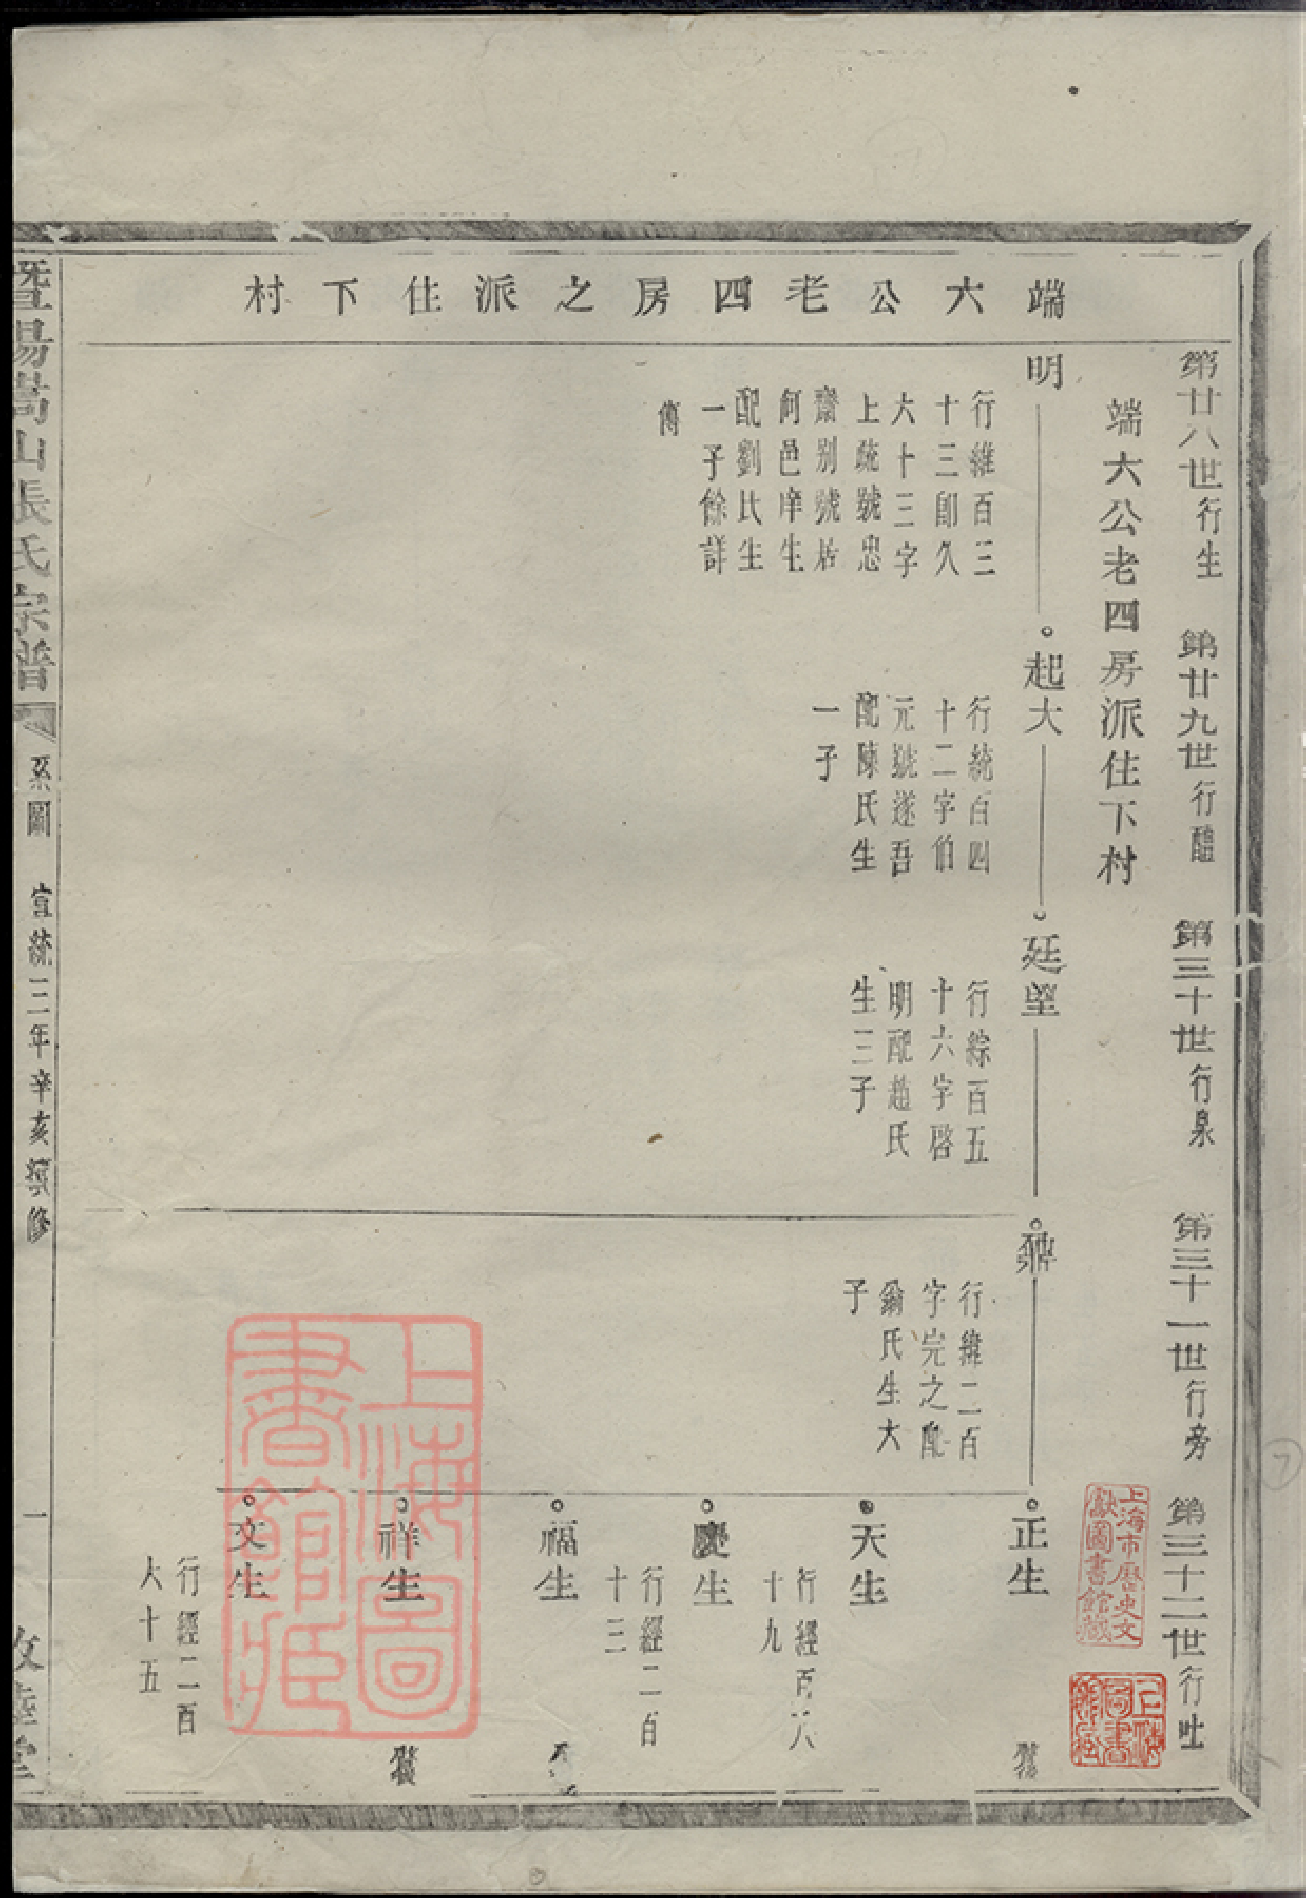 端六公老四房之派住下村
第廿八世行生
第廿九世行醴
第三十世行泉
第三十一世行旁
第三十二世行吐
端六公老四房派住下村
明
行維百三
十三郎久
六十三字
上疏號忠
齋別號居
何邑庠生
配劉氏生
一子餘詳
傳
起大
行統百四
十二字伯
元號遂吾
配陳氏生
一子
廷望
行綜百五
十六字啓
明配趙氏
生三子
行緯二百
字完之配
翁氏生大
子
正生
天生
行經百八
十九
慶生
行經二百
十三
福生
祥生
文生
行經二百
大十五
暨陽嵩山張氏宗譜
系圖
宣統三年辛亥撰修
一
敦睦堂
上海圖書館藏
上海市歷史文獻圖書館藏
上海圖書館藏